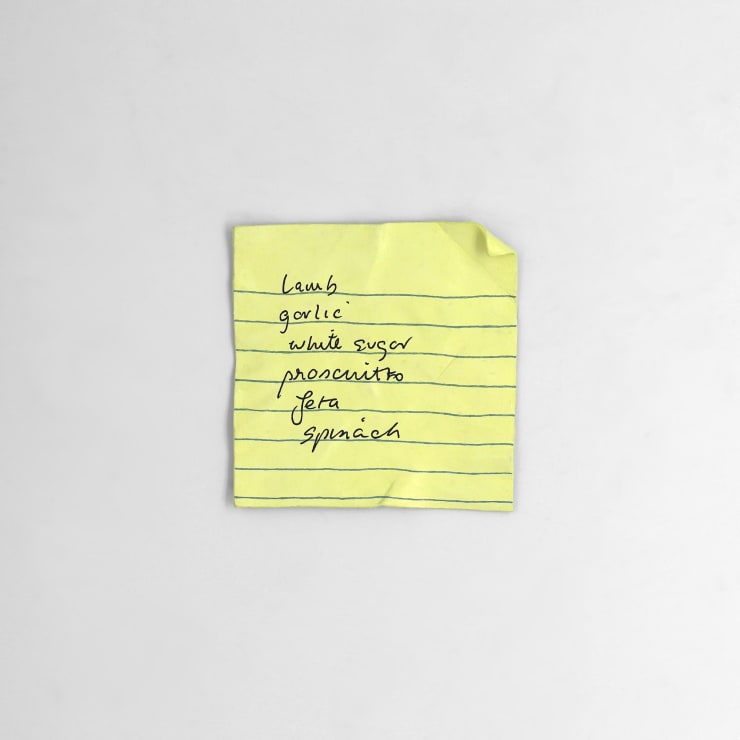 lamb
garlic
white sugar
proscuitto
feta
spinach